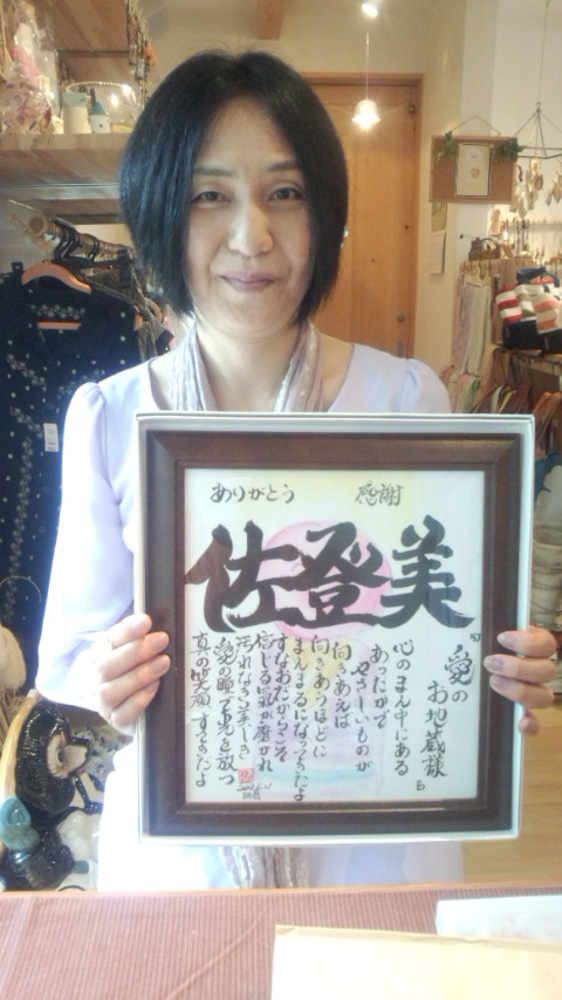 ありがとう 感謝
佐登美
『愛の
お地蔵様』
心のまん中にある
あったかで
やさしいものが
向きあえば
向きあうほどに
まんまるになってきたよ
すなおだからこそ
信じる氣が磨かれ
汚れなき美しき
愛の瞳で光を放つ
真の笑顔 すてきだよ